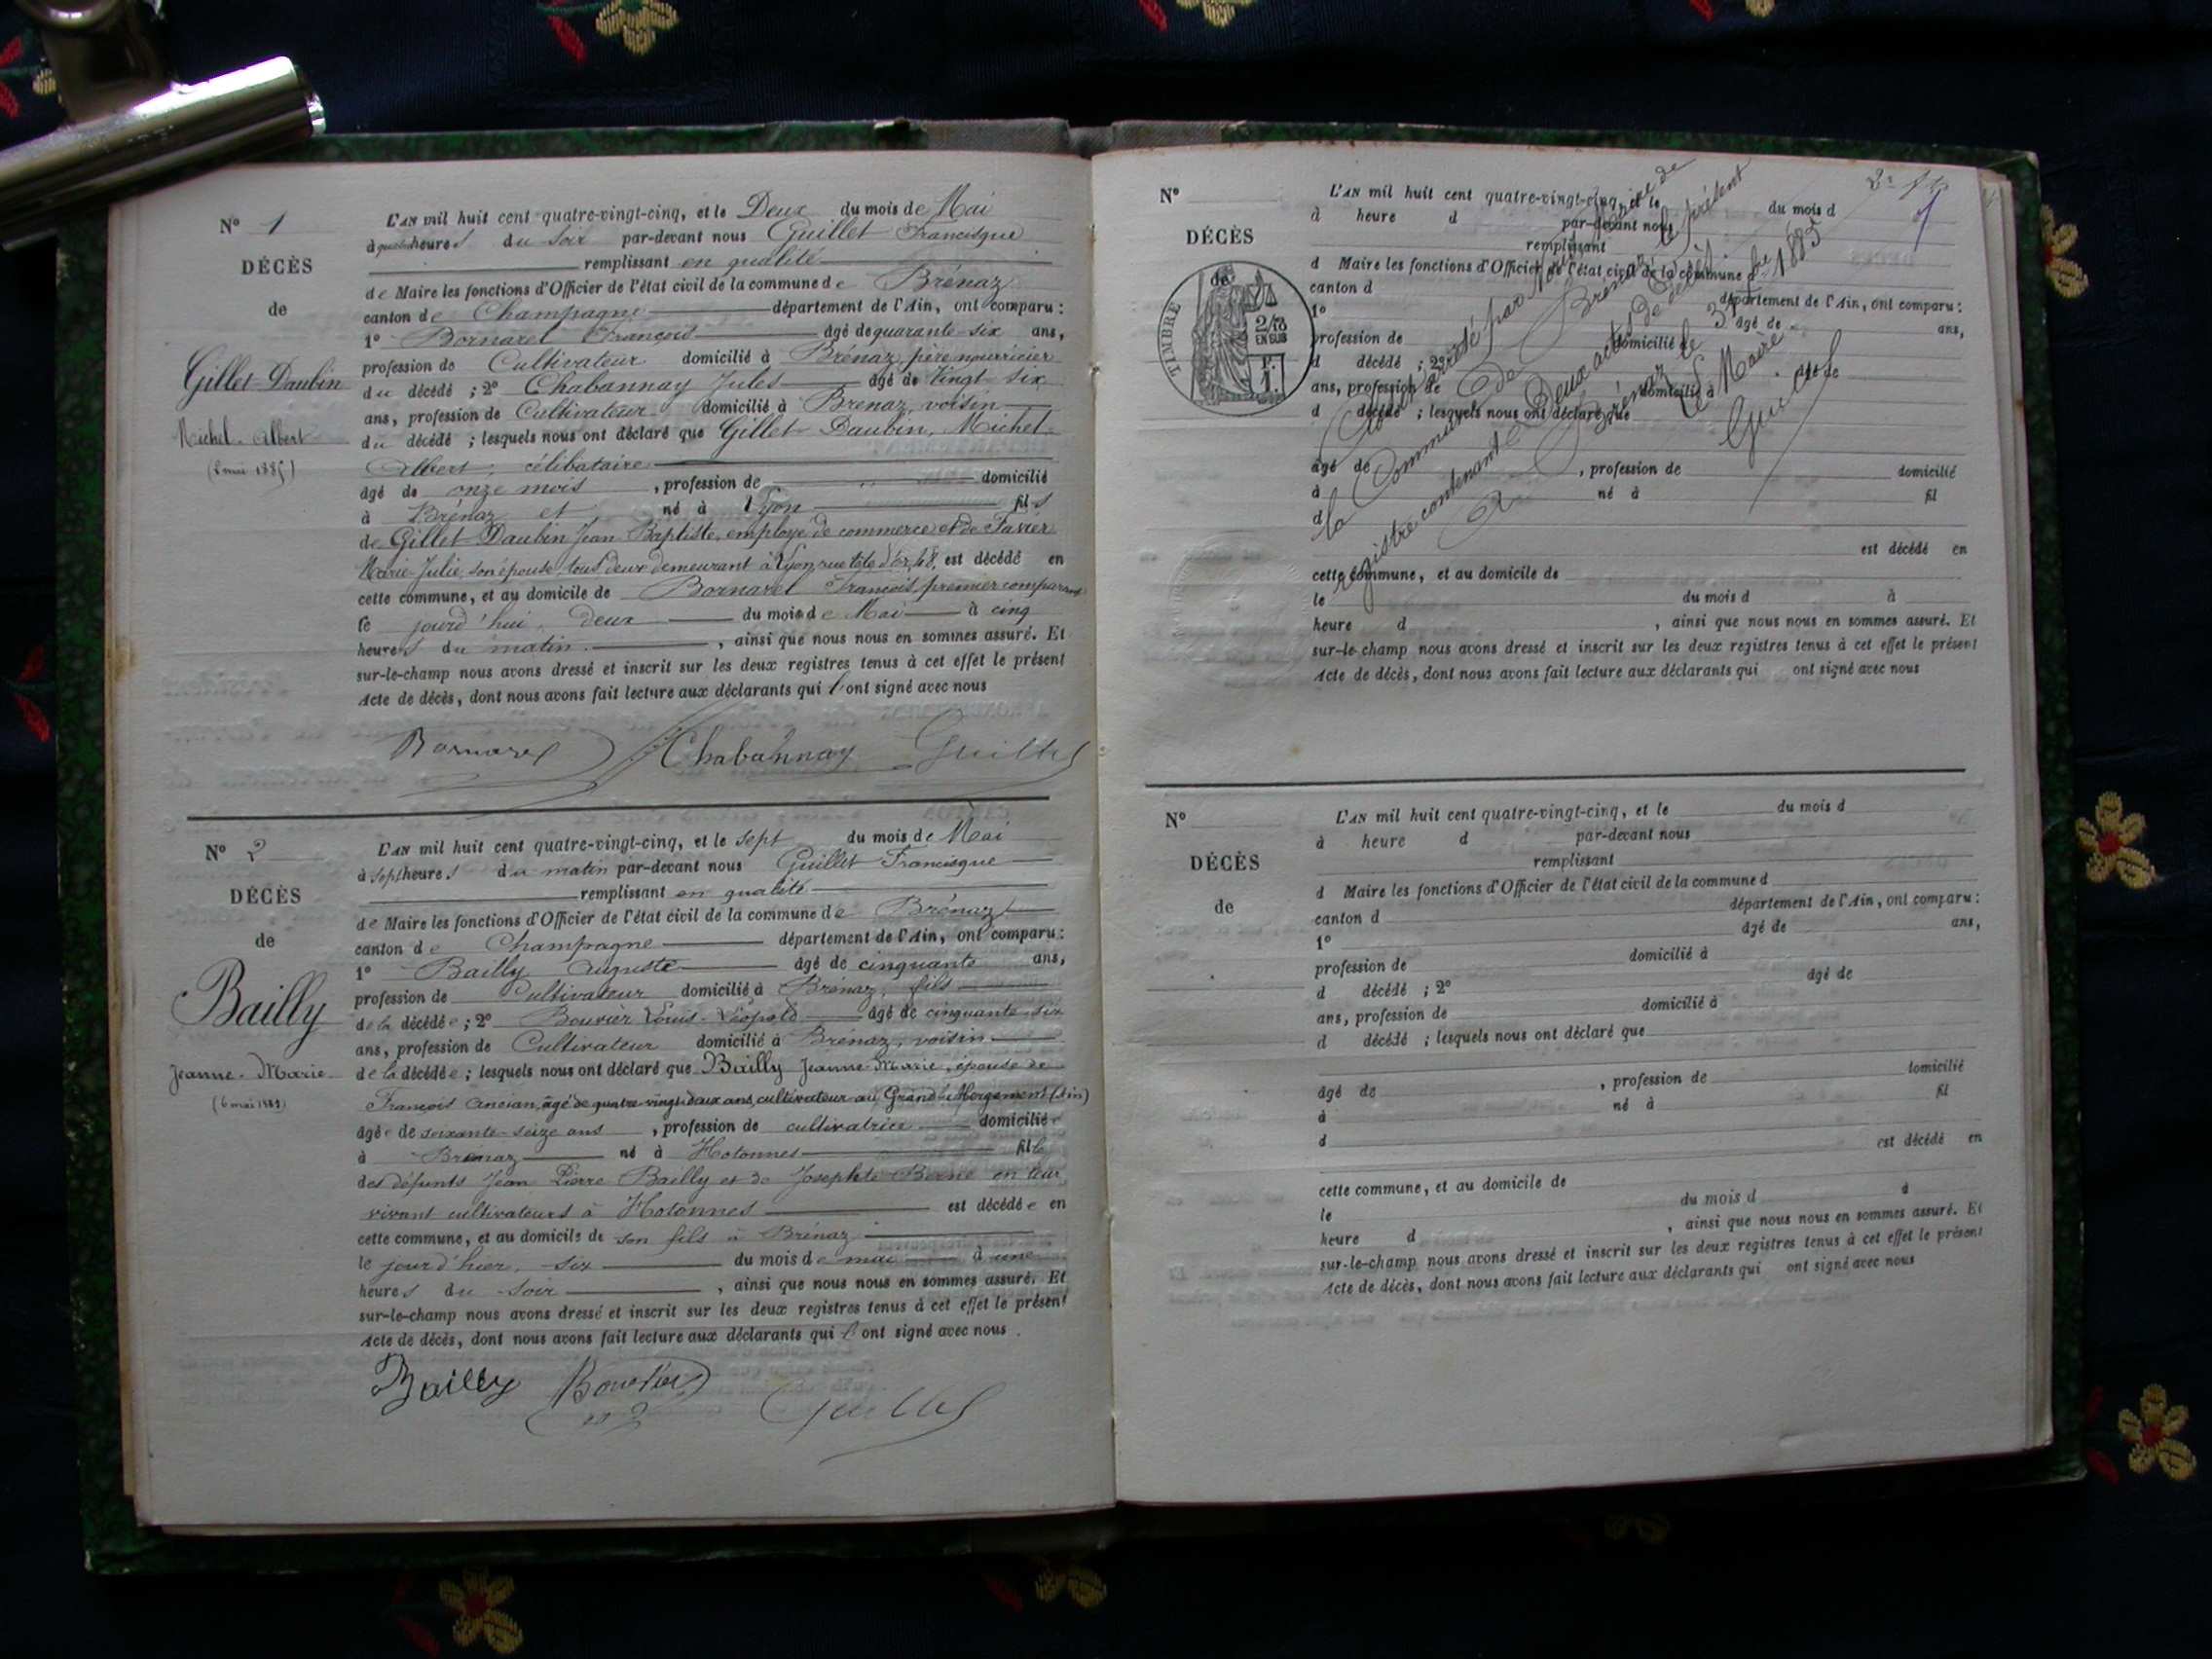 N° 1
DÉCÈS
de
Gillet-Daubin
Michel-Albert
(2 mai 1885)
L'AN mil huit cent quatre-vingt-cinq, et le Deux du mois de Mai
à quatre heures du soir par-devant nous Guillet Francisque
remplissant en qualité
de Maire les fonctions d'Officier de l'état civil de la commune de Brénaz
canton de Champagne département de l'Ain, ont comparu :
1° Bornarel François âgé de quarante-six ans,
profession de Cultivateur domicilié à Brénaz, père nourricier
du décédé ; 2° Chabannay Jules âgé de Vingt-six
ans, profession de Cultivateur domicilié à Brénaz, voisin
du décédé ; lesquels nous ont déclaré que Gillet-Daubin, Michel-
Albert, célibataire
âgé de onze mois , profession de domicilié
à Brénaz et né à Lyon fils
de Gillet-Daubin Jean Baptiste, employé de commerce et de Favier
Marie-Julie, son épouse, tous deux demeurant à Lyon, rue tête d'or, 48, est décédé en
cette commune, et au domicile de Bornarel François, premier comparant
le jourd'hui, deux du mois de Mai à cinq
heures du matin , ainsi que nous nous en sommes assuré. Et
sur-le-champ nous avons dressé et inscrit sur les deux registres tenus à cet effet le présent
Acte de décès, dont nous avons fait lecture aux déclarants qui l'ont signé avec nous
Bornarel Chabannay Guillet
N° 2
DÉCÈS
de
Bailly
Jeanne-Marie
(6 mai 1885)
L'AN mil huit cent quatre-vingt-cinq, et le sept du mois de Mai
à sept heures du matin par-devant nous Guillet Francisque
remplissant en qualité
de Maire les fonctions d'Officier de l'état civil de la commune de Brénaz
canton de Champagne département de l'Ain, ont comparu :
1° Bailly Auguste âgé de cinquante ans,
profession de Cultivateur domicilié à Brénaz, fils
de la décédée ; 2° Bouvier Louis-Léopold âgé de cinquante-six
ans, profession de Cultivateur domicilié à Brénaz, voisin
de la décédée ; lesquels nous ont déclaré que Bailly Jeanne-Marie, épouse de
François Ancian, âgé de quatre-vingt-deux ans, cultivateur au Grand-Abergement (Ain)
âgée de soixante-seize ans , profession de cultivatrice domiciliée
à Brénaz né à Hotonnes fille
des défunts Jean Pierre Bailly et de Josephte Berne en leur
vivant cultivateurs à Hotonnes est décédée en
cette commune, et au domicile de son fils à Brénaz
le jour d'hier, six du mois de mai à une
heures du soir , ainsi que nous nous en sommes assuré. Et
sur-le-champ nous avons dressé et inscrit sur les deux registres tenus à cet effet le présent
Acte de décès, dont nous avons fait lecture aux déclarants qui l'ont signé avec nous.
Bailly Bouvier Guillet
N°
DÉCÈS
de
TIMBRE
2/10
EN SUS
L'AN mil huit cent quatre-vingt-cinq, et le du mois d
à heure d par-devant nous
remplissant
d Maire les fonctions d'Officier de l'état civil de la commune d
canton d département de l'Ain, ont comparu :
1° âgé de ans,
profession de domicilié à
d décédé ; 2° âgé de
ans, profession de domicilié à
d décédé ; lesquels nous ont déclaré que
âgé de , profession de domicilié
à né à fil
d
est décédé en
cette commune, et au domicile de
le du mois d à
heure d , ainsi que nous nous en sommes assuré. Et
sur-le-champ nous avons dressé et inscrit sur les deux registres tenus à cet effet le présent
Acte de décès, dont nous avons fait lecture aux déclarants qui ont signé avec nous
arrêté par Nous Maire de
la Commune de Brénaz le présent
registre contenant Deux actes de décès.
A Brénaz le 31 Xbre 1885
Le Maire
Guillet
N°
DÉCÈS
de
L'AN mil huit cent quatre-vingt-cinq, et le du mois d
à heure d par-devant nous
remplissant
d Maire les fonctions d'Officier de l'état civil de la commune d
canton d département de l'Ain, ont comparu :
1° âgé de ans,
profession de domicilié à
d décédé ; 2° âgé de
ans, profession de domicilié à
d décédé ; lesquels nous ont déclaré que
âgé de , profession de domicilié
à né à fil
d
est décédé en
cette commune, et au domicile de
le du mois d à
heure d , ainsi que nous nous en sommes assuré. Et
sur-le-champ nous avons dressé et inscrit sur les deux registres tenus à cet effet le présent
Acte de décès, dont nous avons fait lecture aux déclarants qui ont signé avec nous